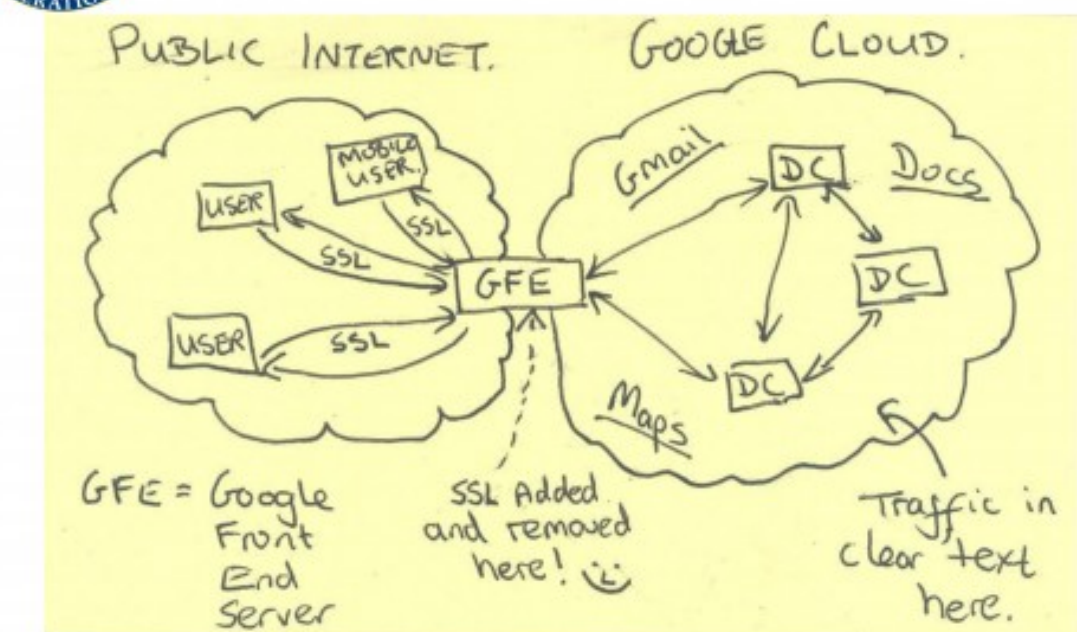 ERATIO
PUBLIC INTERNET.
GOOGLE CLOUD.
MOBILE
USER.
USER
SSL
SSL
GFE
USER
SSL
Gmail
DC
Docs
DC
DC
Maps
GFE = Google
Front
End
Server
SSL Added
and removed
here!
Traffic in
clear text
here.